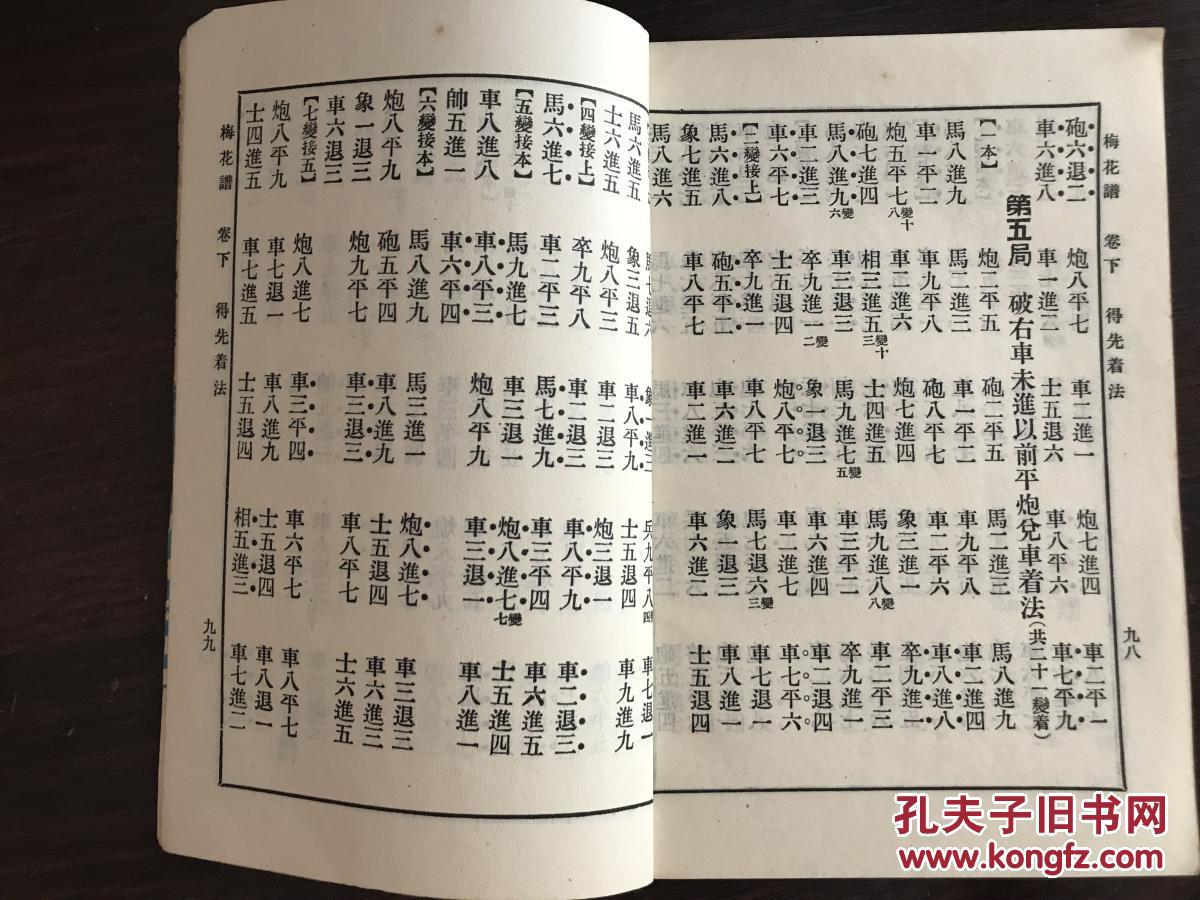 梅花譜 卷下 得先着法 九八
砲六退二 炮八平七 車二進一 炮七進四 車二平一
車六進八 車一進二 士五退六 車八平六 車七平九
第五局 破右車未進以前平炮兌車着法(共二十一變着)
【一本】 炮二平五 砲二平五 馬二進三 馬八進九
馬八進九 馬二進三 車一平二 車九平八 車二進四
車一平二 車九平八 砲八平七 車二平六 車八進八
炮五平七 車二進六 炮七進四 象三進一 卒九進一
砲七進四 相三進五 士四進五 馬九進八 車二平三
馬八進九 車三退三 馬九進七 車三平二 卒九進一
車二進三 卒九進一 象一退三 車六進四 車二退四
車六平七 士五退四 炮八平七 車二進七 車七平六
【二變接上】 卒九進一 車八平七 馬七退六 車七退一
馬六進八 砲五平二 車六進二 象一退三 車八進一
象七進五 車八平七 車二進一 車六進二 士五退四
馬八進六
馬六進五
士六進五 象三退五 車八平九 士五退四 車九進九
【四變接上】 炮八平三 車二退三 炮三退一
馬六進七 卒九平八 車二退三 車八平九 車二退三
【五變接本】 車二平四 馬七進九 車三平四 車六進五
車八進八 馬九進七 車三退一 炮八進七 士五進四
帥五進一 車八平三 炮八平九 車三退一 車八進一
【六變接本】 車六平四
炮八平九 馬八進九 馬三進一 炮八進七 車三退三
象一退三 砲五平四 車八進九 士五退四 車六進三
車六退三 炮九平七 車三退三 車八平七 士六進五
【七變接五】
炮八平九 炮八進七 車三平四 車六平七 車八平七
士四進五 車七退一 車八進九 士五退四 車八退一
車七進五 士五退四 相五進三 車七進二
梅花譜 卷下 得先着法 九九
孔夫子旧书网
www.kongfz.com